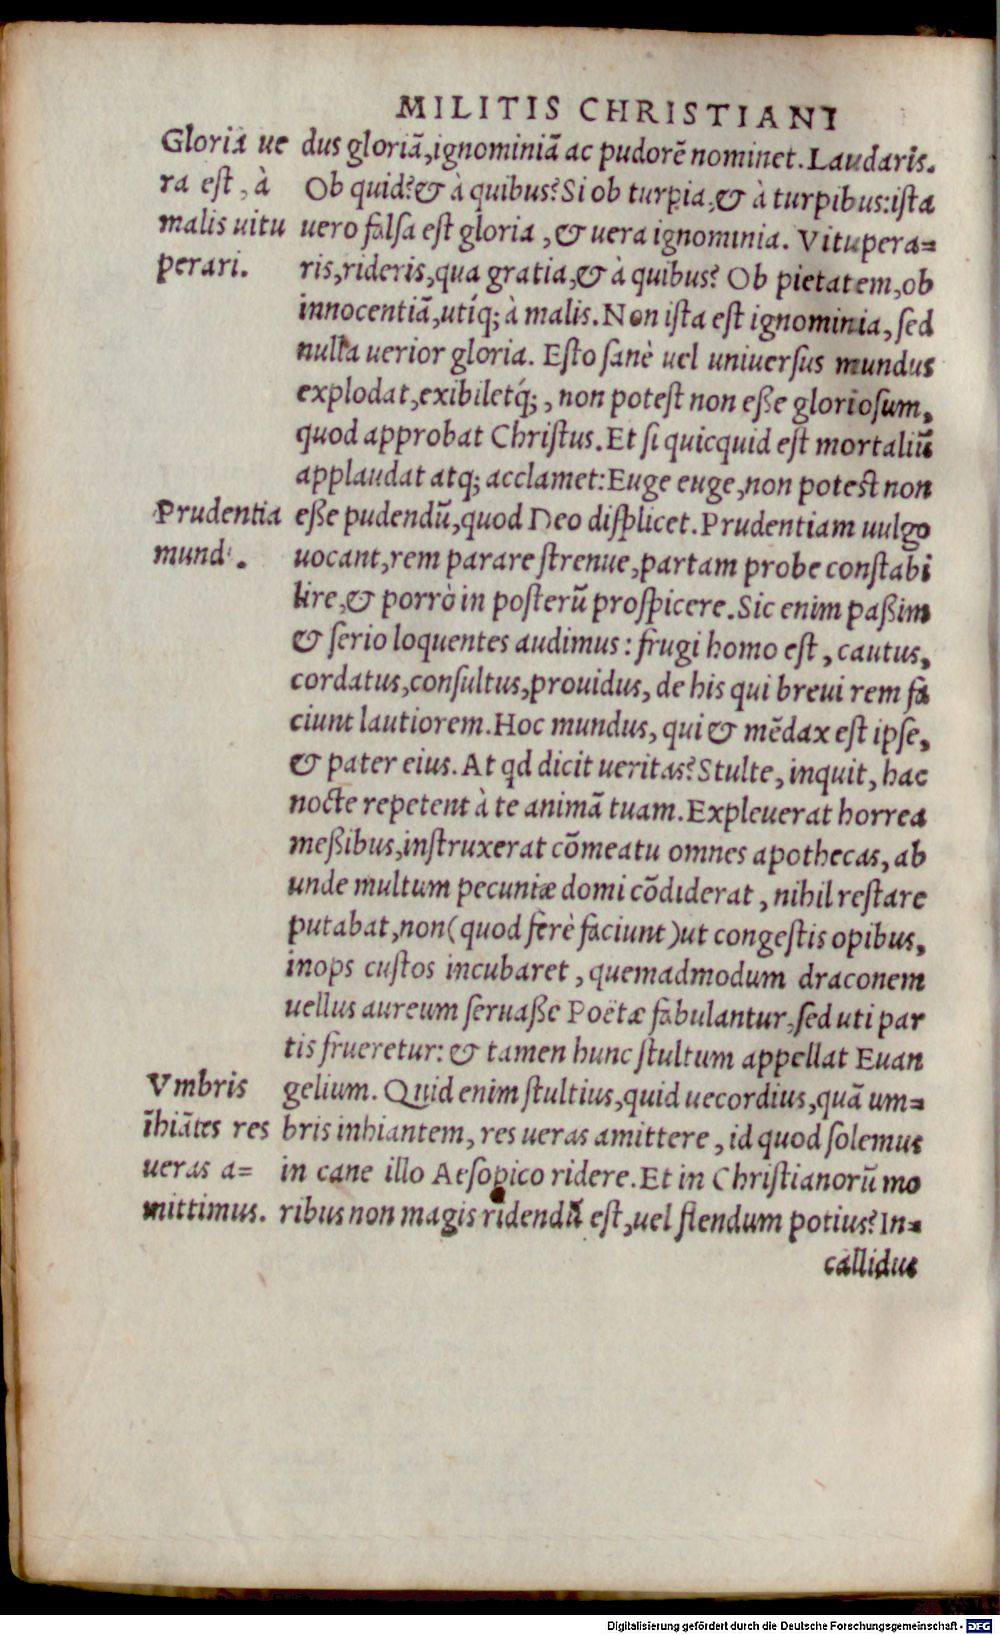 MILITIS CHRISTIANI
Gloria ue
ra est, à
malis uitu
perari.
dus gloriā, ignominiā ac pudorē nominet. Laudaris.
Ob quid? & à quibus? Si ob turpia, & à turpibus: ista
uero falsa est gloria, & uera ignominia. Vitupera=
ris, rideris, qua gratia, & à quibus? Ob pietatem, ob
innocentiā, utíq; à malis. Non ista est ignominia, sed
nulla uerior gloria. Esto sanè uel uniuersus mundus
explodat, exibiletq́;, non potest non eße gloriosum,
quod approbat Christus. Et si quicquid est mortaliū
applaudat atq; acclamet: Euge euge, non potest non
Prudentia
mundi.
eße pudendū, quod Deo displicet. Prudentiam uulgo
uocant, rem parare strenue, partam probe constabi
lire, & porrò in posterū prospicere. Sic enim paßim
& serio loquentes audimus: frugi homo est, cautus,
cordatus, consultus, prouidus, de his qui breui rem fa
ciunt lautiorem. Hoc mundus, qui & mēdax est ipse,
& pater eius. At qd dicit ueritas? Stulte, inquit, hac
nocte repetent à te animā tuam. Expleuerat horrea
meßibus, instruxerat cōmeatu omnes apothecas, ab
unde multum pecuniæ domi cōdiderat, nihil restare
putabat, non (quod ferè faciunt) ut congestis opibus,
inops custos incubaret, quemadmodum draconem
uellus aureum seruaße Poëtæ fabulantur, sed uti par
tis frueretur: & tamen hunc stultum appellat Euan
Vmbris
īhiātes res
ueras a=
mittimus.
gelium. Quid enim stultius, quid uecordius, quā um=
bris inhiantem, res ueras amittere, id quod solemus
in cane illo Aesopico ridere. Et in Christianorū mo
ribus non magis ridendū est, uel flendum potius? In=
callidus
Digitalisierung gefördert durch die Deutsche Forschungsgemeinschaft - DFG